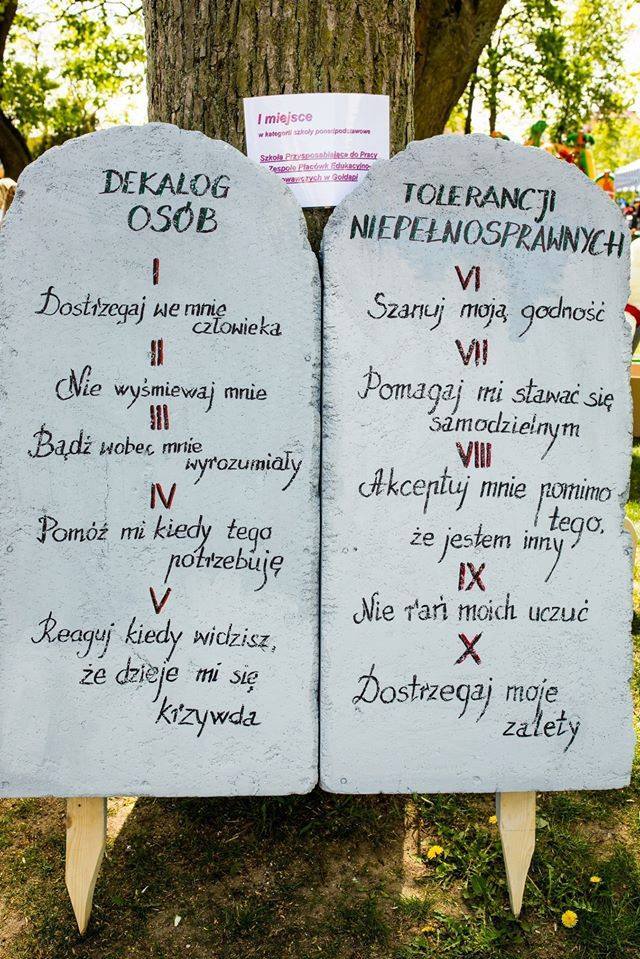 I miejsce
w kategorii szkoły ponadpodstawowe
Szkoła Przysposabiająca do Pracy
Zespole Placówk Edukacyjno-
owawczych w Gołdapi
DEKALOG
OSÓB
I
Dostrzegaj we mnie
człowieka
II
Nie wyśmiewaj mnie
III
Bądź wobec mnie
wyrozumiały
IV
Pomóż mi kiedy tego
potrzebuję
V
Reaguj kiedy widzisz,
że dzieje mi się
krzywda
TOLERANCJI
NIEPEŁNOSPRAWNYCH
VI
Szanuj moją godność
VII
Pomagaj mi stawać się
samodzielnym
VIII
Akceptuj mnie pomimo
tego,
że jestem inny
IX
Nie rań moich uczuć
X
Dostrzegaj moje
zalety